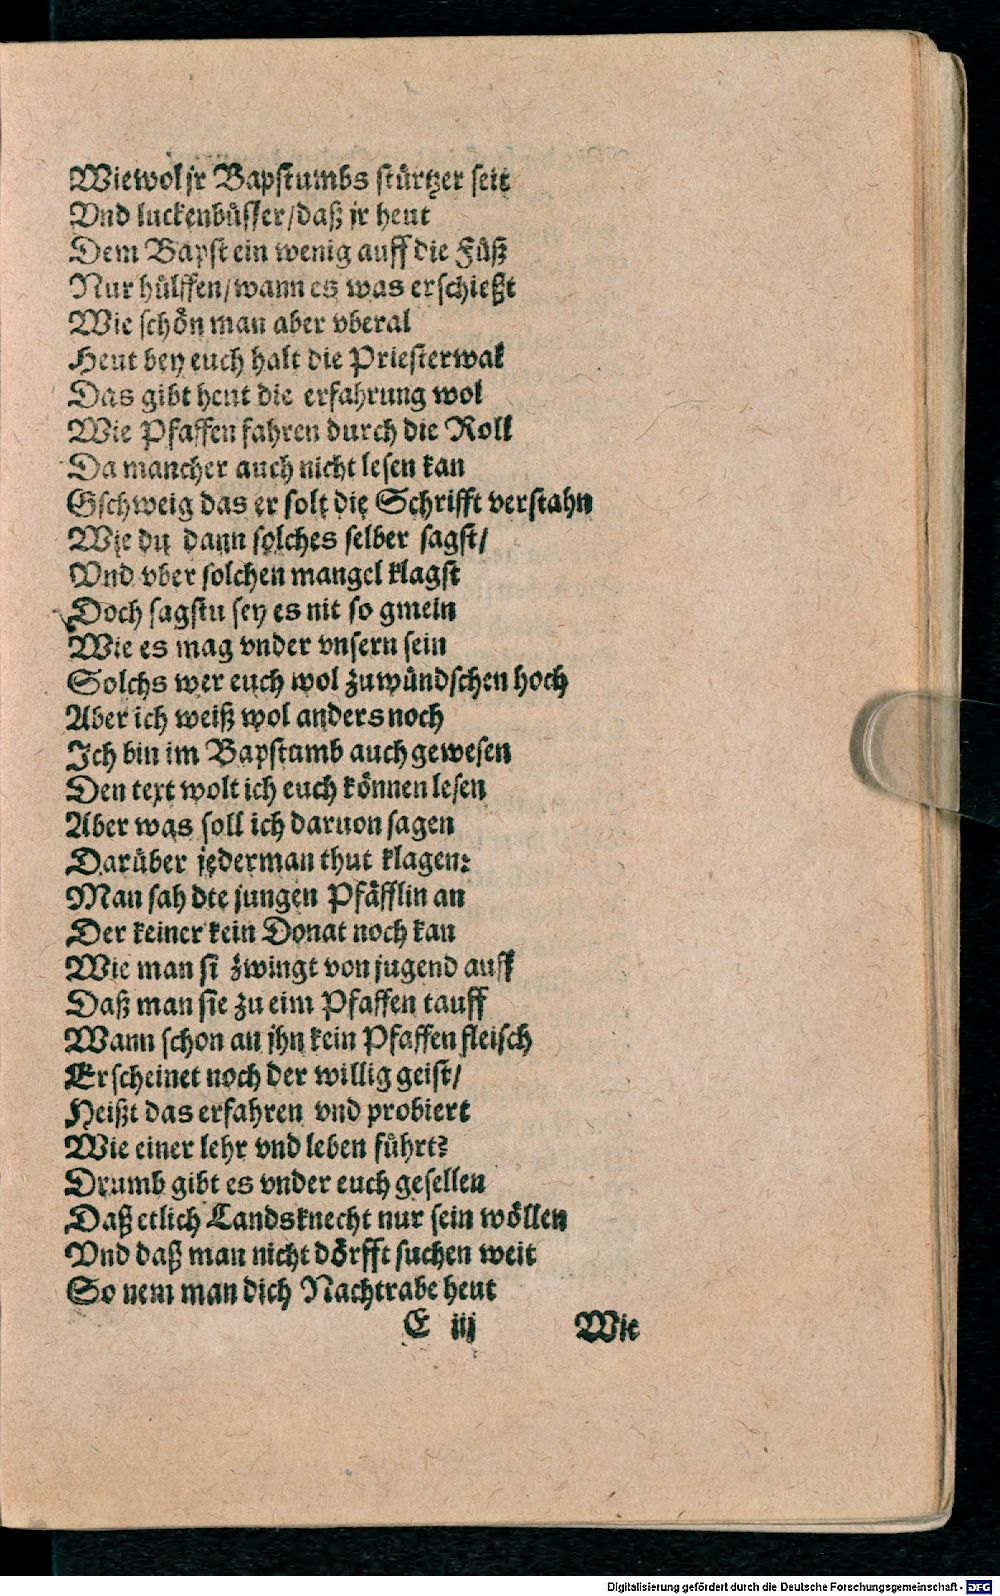 Wiewol jr Bapstumbs stürtzer seit
Vnd luckenbüsser/daß jr heut
Dem Bapst ein wenig auff die Füß
Nur hülffen/wann es was erschießt
Wie schön man aber vberal
Heut bey euch halt die Priesterwal
Das gibt heut die erfahrung wol
Wie Pfaffen fahren durch die Roll
Da mancher auch nicht lesen kan
Gschweig das er solt die Schrifft verstahn
Wie du dann solches selber sagst/
Vnd vber solchen mangel klagst
Doch sagstu sey es nit so gmein
Wie es mag vnder vnsern sein
Solchs wer euch wol zuwündschen hoch
Aber ich weiß wol anders noch
Ich bin im Bapstumb auch gewesen
Den text wolt ich euch können lesen
Aber was soll ich daruon sagen
Darüber jederman thut klagen:
Man sah dte jungen Pfäfflin an
Der keiner kein Donat noch kan
Wie man si zwingt von jugend auff
Daß man sie zu eim Pfaffen tauff
Wann schon an jhn kein Pfaffen fleisch
Erscheinet noch der willig geist/
Heißt das erfahren vnd probiert
Wie einer lehr vnd leben führt?
Drumb gibt es vnder euch gesellen
Daß etlich Landsknecht nur sein wöllen
Vnd daß man nicht dörfft suchen weit
So nem man dich Nachtrabe heut
E iij Wie
Digitalisierung gefördert durch die Deutsche Forschungsgemeinschaft - DFG